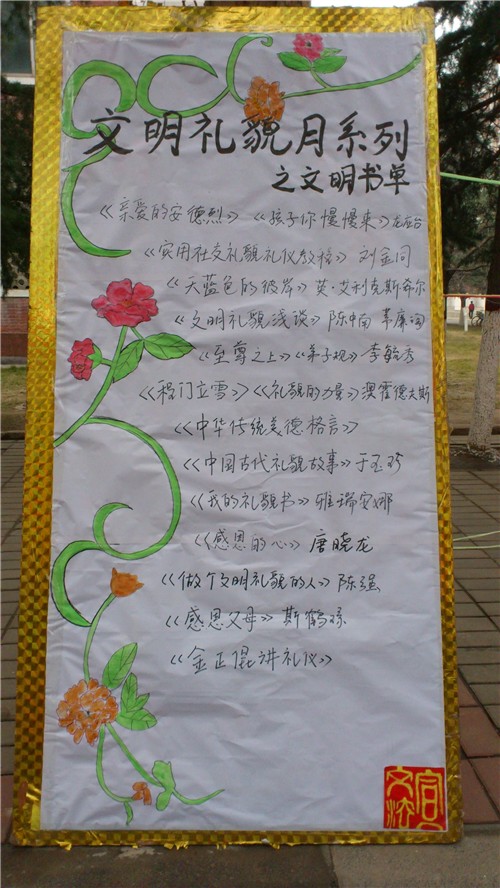 文明礼貌月系列
之文明书单
《亲爱的安德烈》《孩子你慢慢来》龙应台
《实用社交礼貌礼仪教程》 刘金同
《天蓝色的彼岸》英·艾利克斯希尔
《文明礼貌浅谈》陈中南 
《至尊之上》《弟子规》李毓秀
《程门立雪》《礼貌的力量》澳霍德夫斯
《中华传统美德格言》
《中国古代礼貌故事》于玉珍
《我的礼貌书》雅瑞安娜
《感恩的心》唐晓龙
《做个文明礼貌的人》陈强
《感恩父母》斯鹤琢
《金正昆讲礼仪》